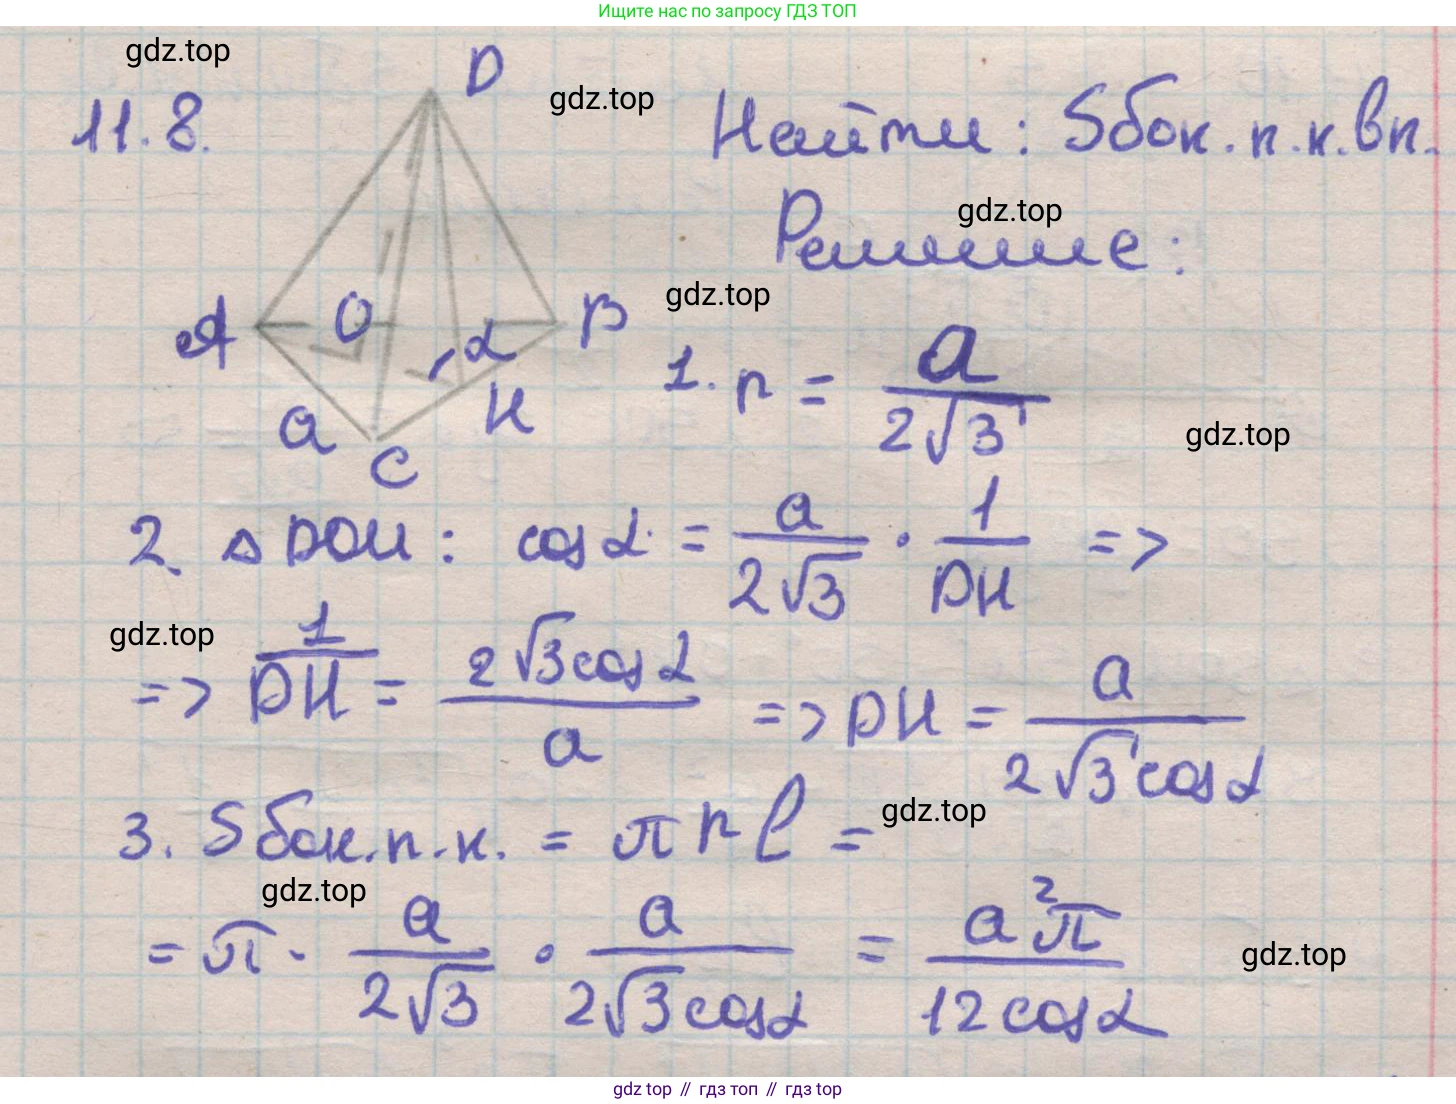 Ищите нас по запросу ГДЗ ТОП
gdz.top
11.8.
D
gdz.top
Найти: Sбок.п.к.вп.
gdz.top
Решение:
gdz.top
A O B
α
a H
C
1. r = a/(2√3)
gdz.top
2. △DOH: cosα = a/(2√3) · 1/DH =>
gdz.top
=> 1/DH = 2√3cosα/a => DH = a/(2√3cosα)
gdz.top
3. Sбок.п.к. = πrl =
gdz.top
= π · a/(2√3) · a/(2√3cosα) = a²π/(12cosα)
gdz.top
gdz top // гдз топ // гдз top